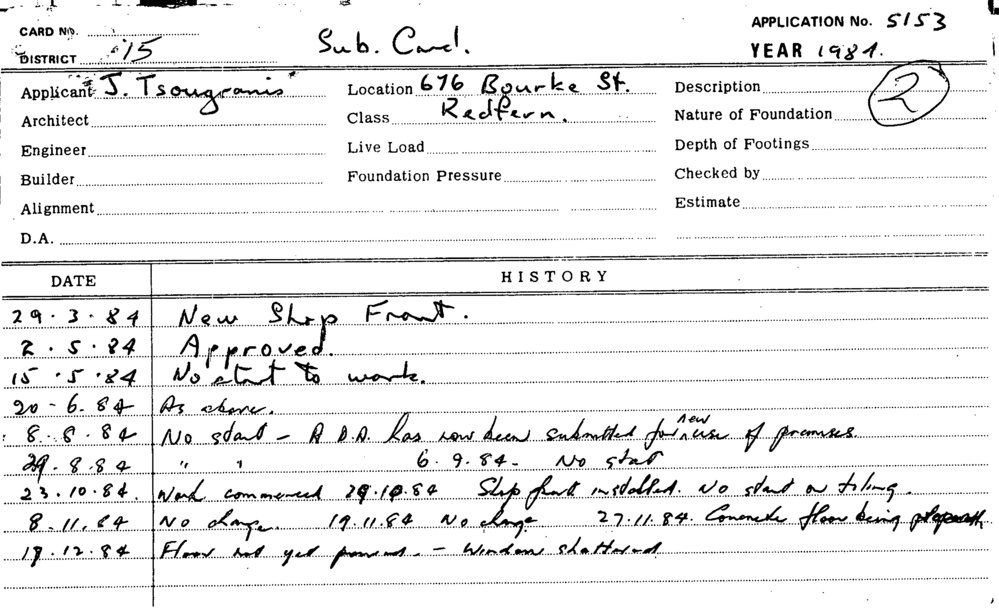 CARD No. APPLICATION No. 5153
DISTRICT 15 Sub. Card. YEAR 1984.
Applicant J. Tsougranis Location 676 Bourke St. Description 2
Architect Class Redfern. Nature of Foundation
Engineer Live Load Depth of Footings
Builder Foundation Pressure Checked by
Alignment Estimate
D.A.
DATE HISTORY
29.3.84 New Shop Front.
2.5.84 Approved.
15.5.84 No start to work.
20-6.84 As above.
8.8.84 No start - A D.A. has now been submitted for new use of premises.
29.8.84 " " 6.9.84- No start
23.10.84. Work commenced 29.10.84 Shop front installed. No start on tiling.
8.11.84 No change. 19.11.84 No change 27.11.84. Concrete floor being
19.12.84 Floor not yet poured. - Window shattered